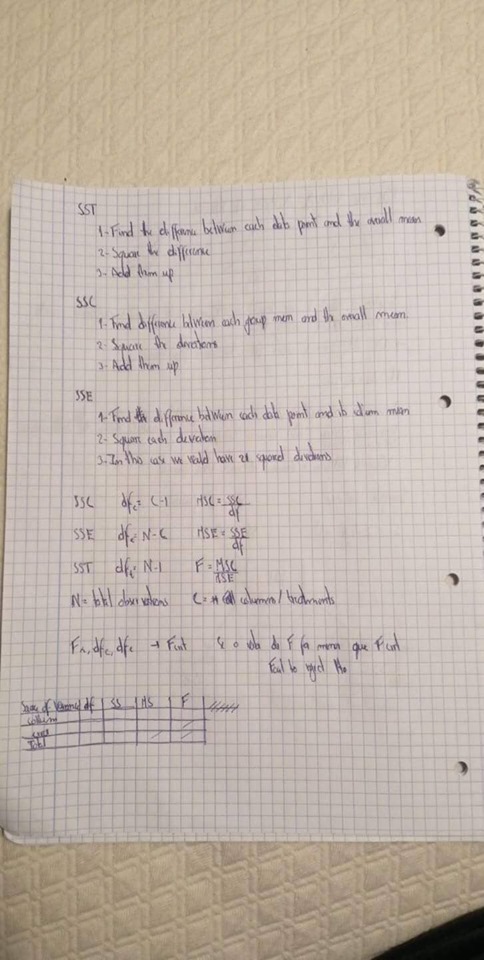 SST
1- Find the difference between each data point and the overall mean
2- Square the difference
3- Add them up
SSC
1- Find difference between each group mean and the overall mean.
2- Square the deviations
3- Add them up
SSE
1- Find the difference between each data point and its column mean
2- Square each deviation
3- In this case we would have 21 squared deviations
SSC df_c = C-1 MSC = SSC/df
SSE df_e = N-C MSE = SSE/df
SST df_t = N-1 F = MSC/MSE
N = total observations C = # columns/treatments
F, df_c, df_e → F crit o valor do F for menor que F crit
Fail to reject H₀
Source of Variance df SS MS F
column
error
Total